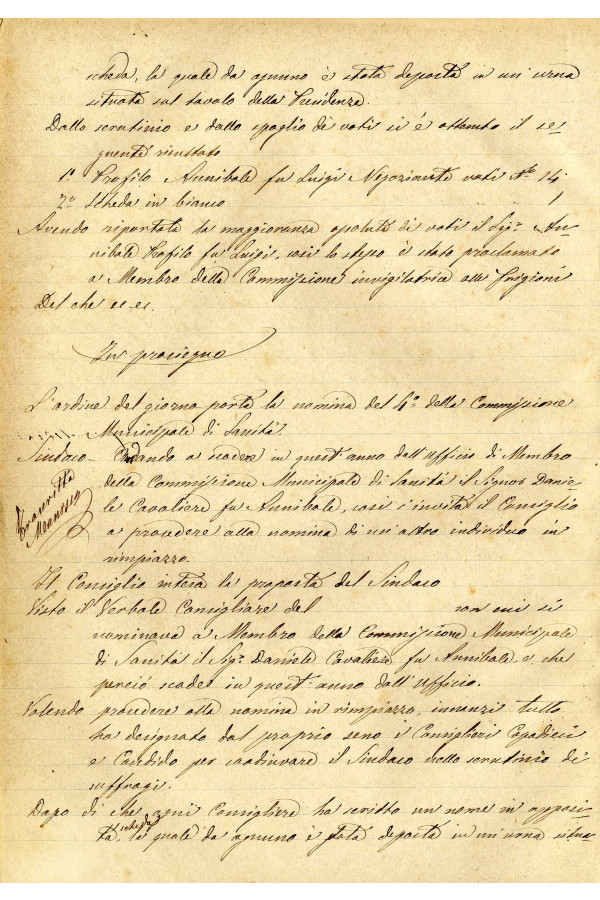 scheda, la quale da ognuno è stata deposta in un'urna
situata sul tavolo della Presidenza.
Dallo scrutinio e dallo spoglio di voti si è ottenuto il se-
guente risultato
1° Profilo Annibale fu Luigi Negoziante voti N° 14
2° Scheda in bianco 1
Avendo riportata la maggioranza assoluta di voti il Sigr. An-
nibale Profilo fu Luigi, così lo stesso è stato proclamato
a Membro della Commissione invigilatrice alle Prigioni
Del che ec. ec.
In prosieguo
L'ordine del giorno porta la nomina del 4° della Commissione
Municipale di Sanità.
Sindaco - Andando a scadere in quest'anno dall'ufficio di Membro
della Commissione Municipale di Sanità il Signor Danie-
le Cavaliere fu Annibale, così s'invita il Consiglio
a provvedere alla nomina di un'altro individuo in
rimpiazzo.
Il Consiglio intesa la proposta del Sindaco
Visto il Verbale Consigliare del con cui si
nominava a Membro della Commissione Municipale
di Sanità il Sigr. Daniele Cavaliere fu Annibale, e che
perciò scade in quest'anno dall'ufficio.
Volendo provvedere alla nomina in rimpiazzo innanzi tutto
ha designato dal proprio seno i Consiglieri
e Candido per coadiuvare il Sindaco nello scrutinio di
suffragi.
Dopo di che ogni Consigliere ha scritto un nome in apposi-
ta scheda, la quale da ognuno è stata deposta in un'urna situa-